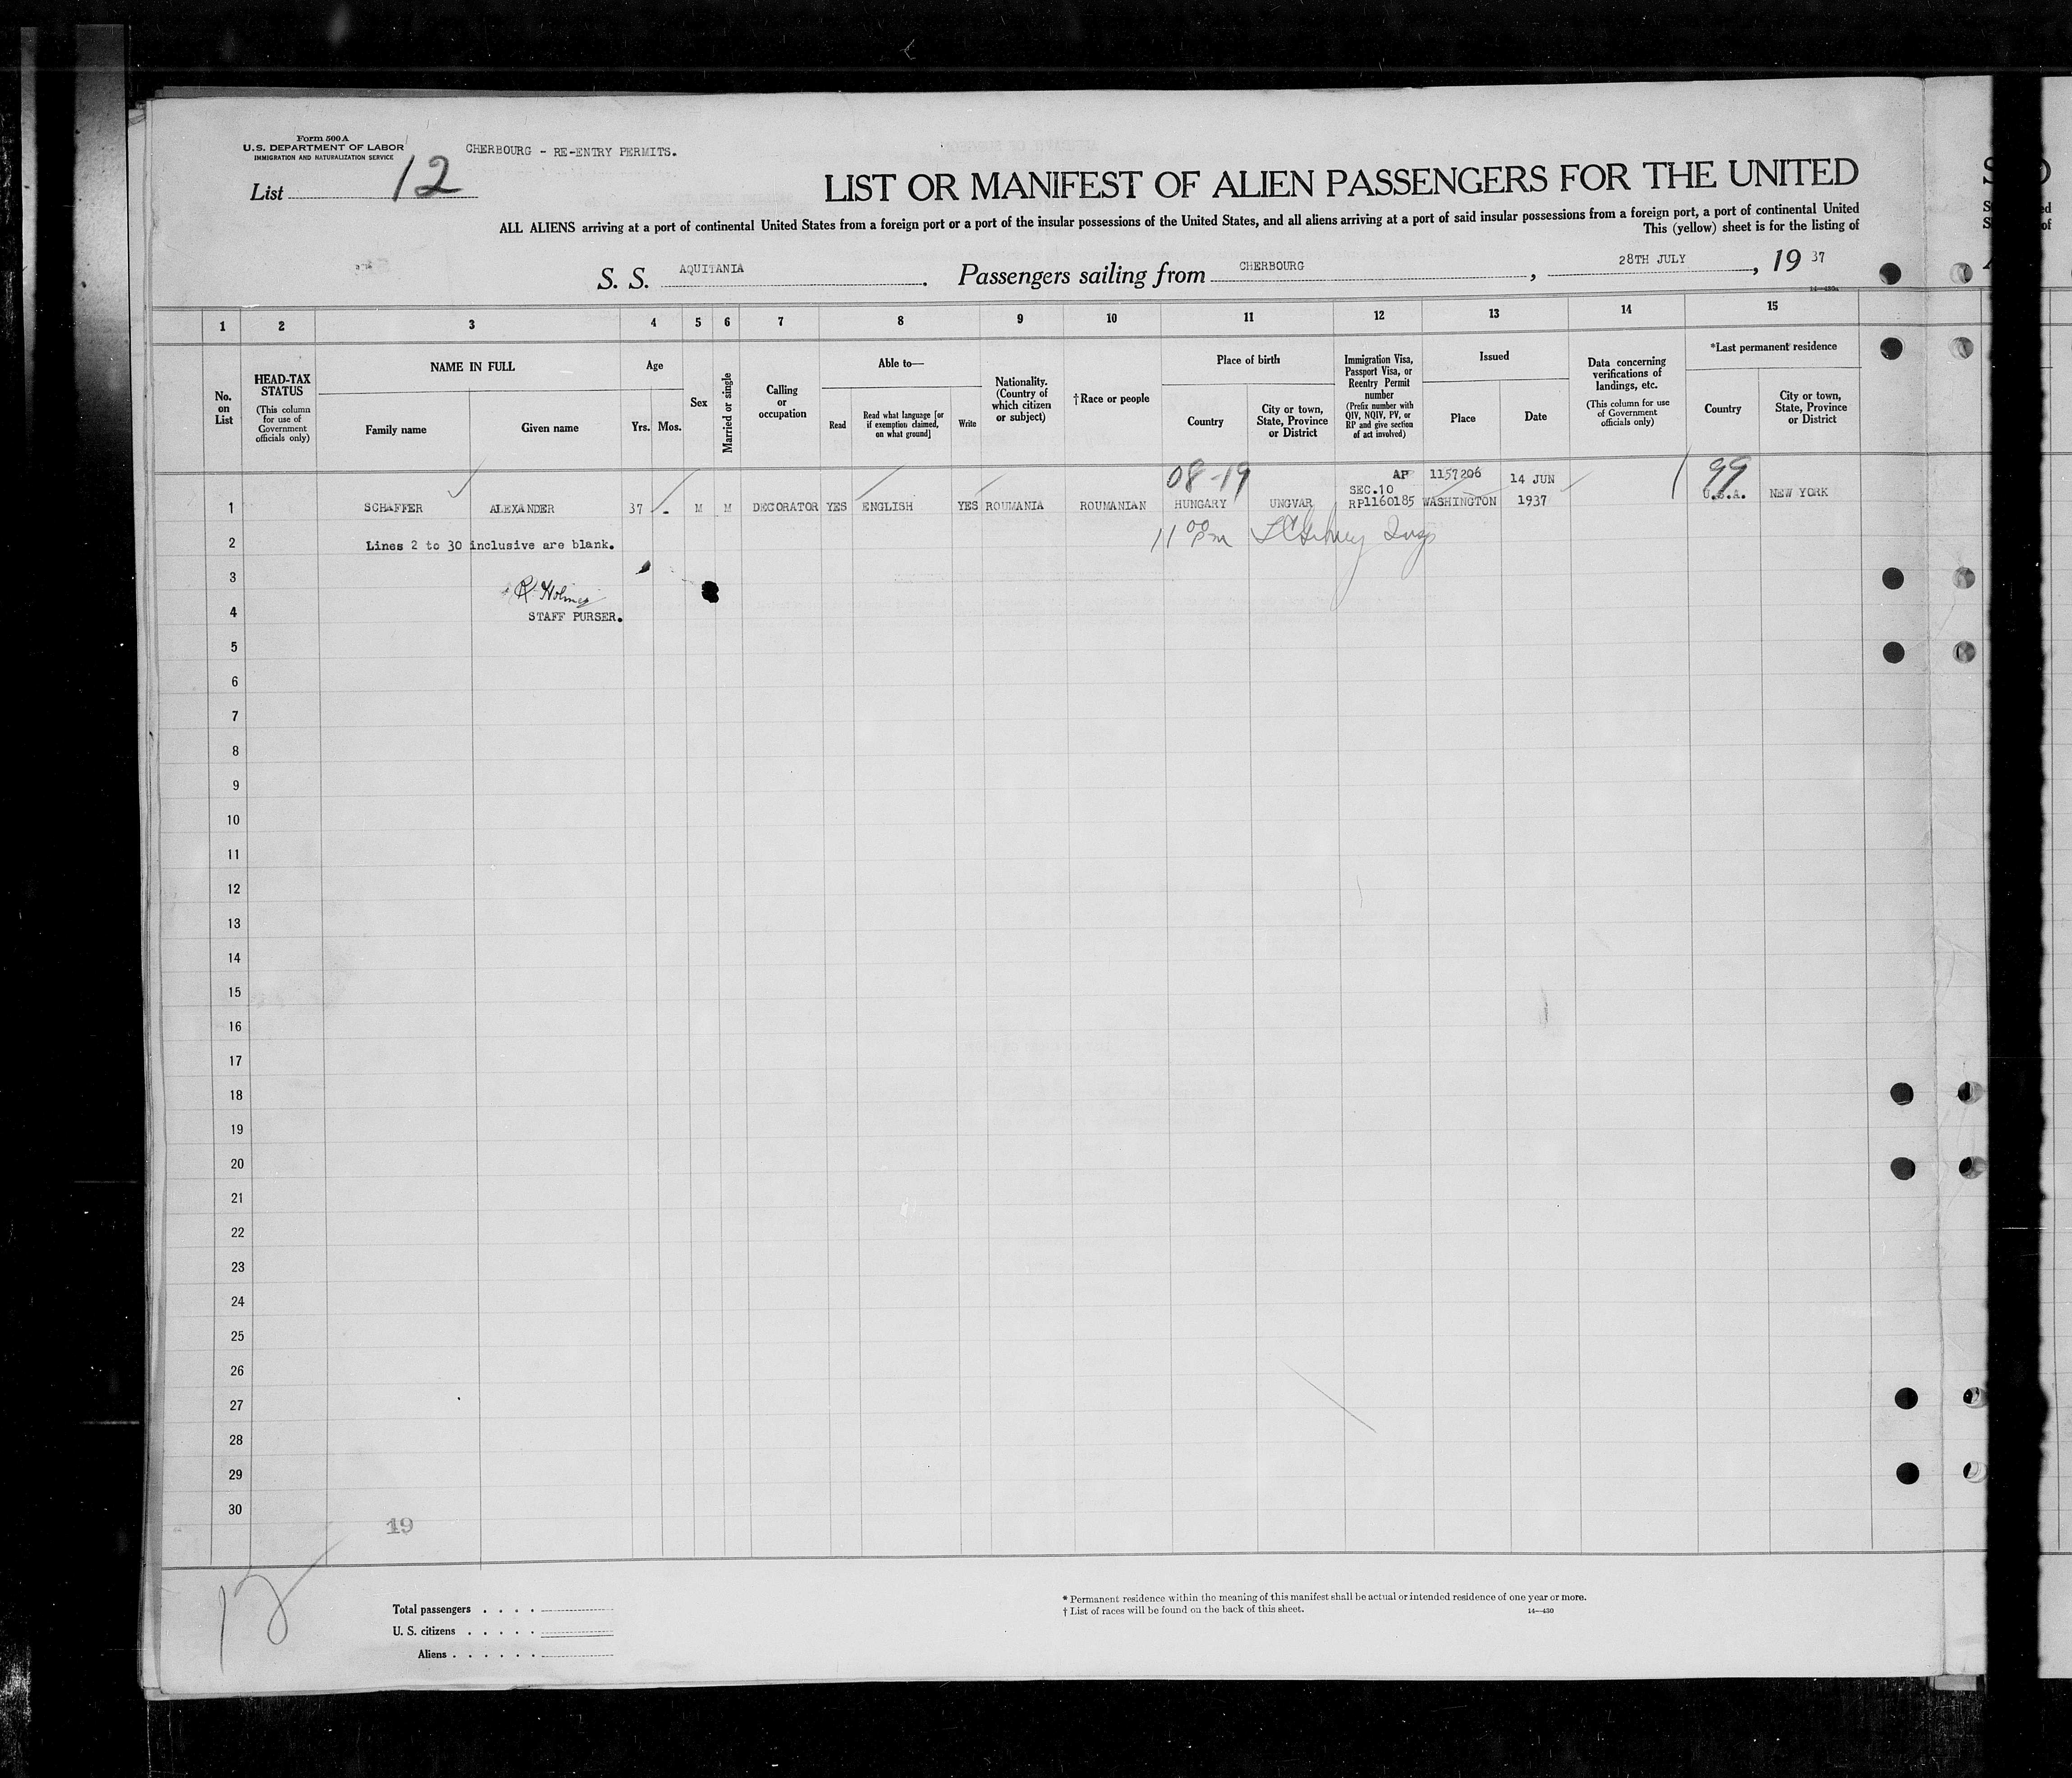 Form 500 A
U.S. DEPARTMENT OF LABOR
IMMIGRATION AND NATURALIZATION SERVICE
CHERBOURG - RE-ENTRY PERMITS.
List 12
LIST OR MANIFEST OF ALIEN PASSENGERS FOR THE UNITED
ALL ALIENS arriving at a port of continental United States from a foreign port or a port of the insular possessions of the United States, and all aliens arriving at a port of said insular possessions from a foreign port, a port of continental United
This (yellow) sheet is for the listing of
S. S. AQUITANIA. Passengers sailing from CHERBOURG, 28TH JULY, 19 37
1 2 3 4 5 6 7 8 9 10 11 12 13 14 15
No. on List
HEAD-TAX STATUS
(This column for use of Government officials only)
NAME IN FULL
Family name
Given name
Age
Yrs. Mos.
Sex
Married or single
Calling or occupation
Able to—
Read
Read what language [or if exemption claimed, on what ground]
Write
Nationality. (Country of which citizen or subject)
†Race or people
Place of birth
Country
City or town, State, Province or District
Immigration Visa, Passport Visa, or Reentry Permit number
(Prefix number with QIV, NQIV, PV, or RP and give section of act involved)
Issued
Place
Date
Data concerning verifications of landings, etc.
(This column for use of Government officials only)
*Last permanent residence
Country
City or town, State, Province or District
08-19 AP 1157206 14 JUN 99
SEC.10
1 SCHAFFER ALEXANDER 37 - M M DECORATOR YES ENGLISH YES ROUMANIA ROUMANIAN HUNGARY UNGVAR RP1160185 WASHINGTON 1937 U.S.A. NEW YORK
2 Lines 2 to 30 inclusive are blank. 11 00 pm Insp
3 R. Holmes
4 STAFF PURSER.
5
6
7
8
9
10
11
12
13
14
15
16
17
18
19
20
21
22
23
24
25
26
27
28
29
30
19
12
Total passengers . . . .
U. S. citizens . . . . .
Aliens . . . . . .
* Permanent residence within the meaning of this manifest shall be actual or intended residence of one year or more.
† List of races will be found on the back of this sheet.
14—430